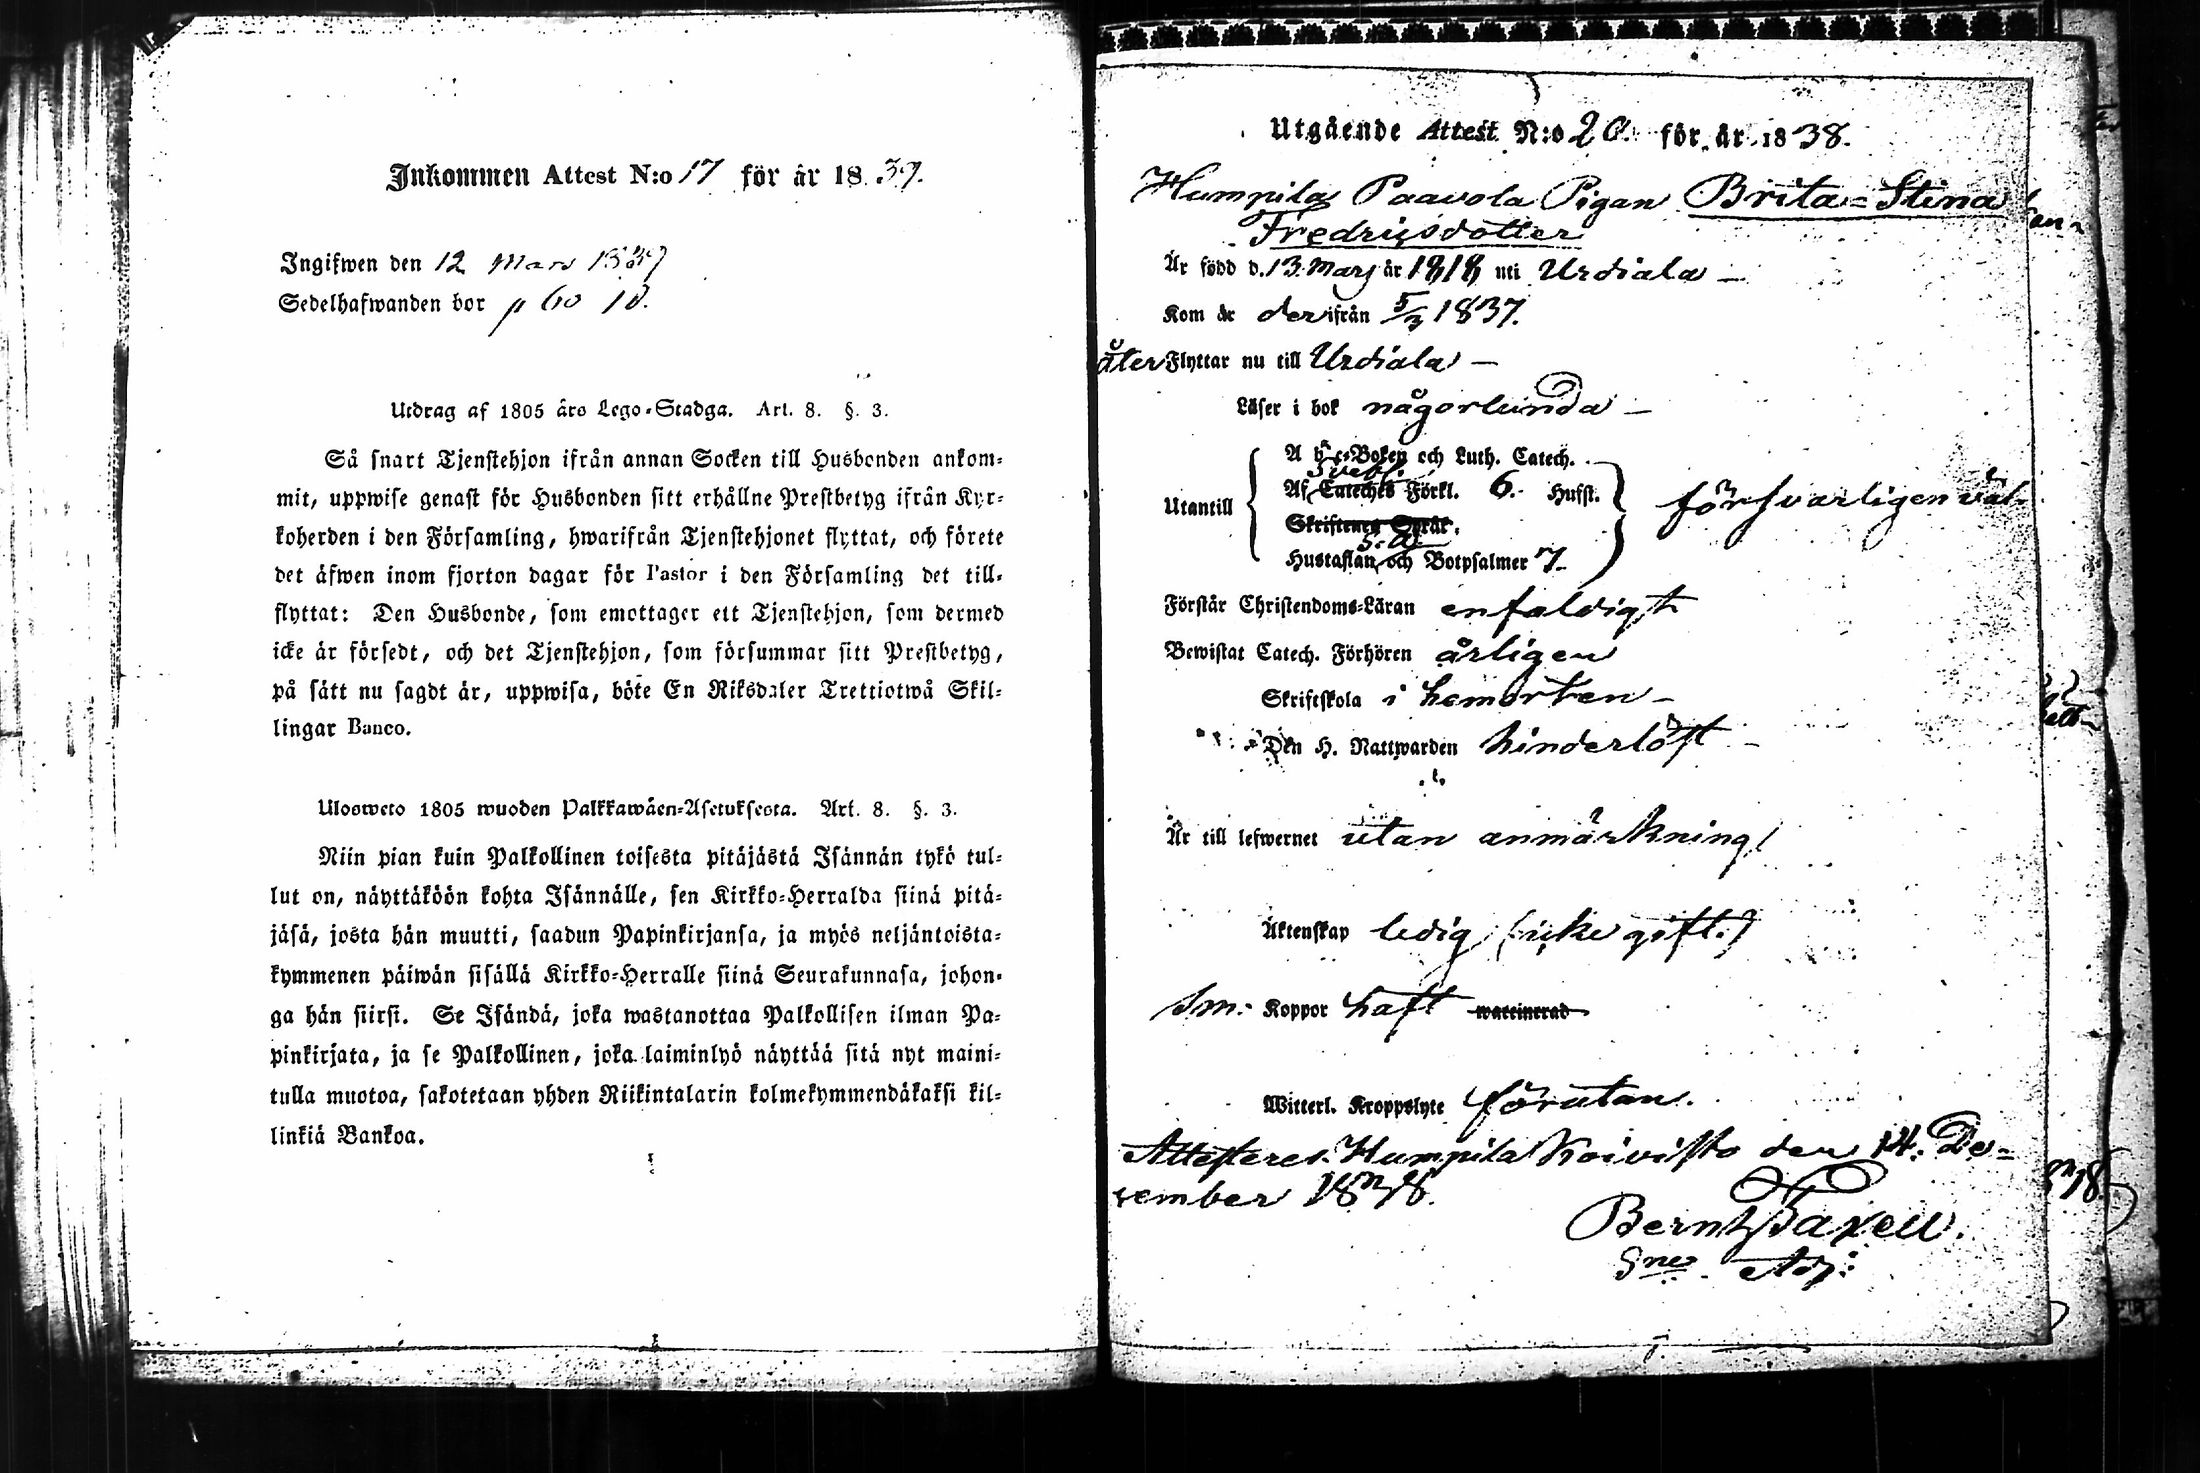 Inkommen Attest N:o 17 för år 1839.
Ingifwen den 12 Mars 1839
Sedelhafwanden bor p 60 10.
Utdrag af 1805 års Lego-Stadga. Art. 8. §. 3.
Så snart Tjenstehjon ifrån annan Socken till Husbonden ankom-
mit, uppwise genast för Husbonden sitt erhållne Prestbetyg ifrån Kyr-
koherden i den Församling, hwarifrån Tjenstehjonet flyttat, och förete
det äfwen inom fjorton dagar för Pastor i den Församling det till-
flyttat: Den Husbonde, som emottager ett Tjenstehjon, som dermed
icke är försedt, och det Tjenstehjon, som försummar sitt Prestbetyg,
på sätt nu sagdt är, uppwisa, böte En Riksdaler Trettiotwå Skil-
lingar Banco.
Ulosweto 1805 wuoden Palkkawäen-Asetuksesta. Art. 8. §. 3.
Niin pian kuin Palkollinen toisesta pitäjästä Isännän tykö tul-
lut on, näyttäköön kohta Isännälle, sen Kirkko-Herralda siinä pitä-
jäsä, josta hän muutti, saadun Papinkirjansa, ja myös neljäntoista-
kymmenen päiwän sisällä Kirkko-Herralle siinä Seurakunnasa, johon-
ga hän siirsi. Se Isändä, joka wastanottaa Palkollisen ilman Pa-
pinkirjata, ja se Palkollinen, joka laiminlyö näyttää sitä nyt maini-
tulla muotoa, sakotetaan yhden Riikintalarin kolmekymmendäkaksi kil-
linkiä Bankoa.
Utgående Attest N:o 20. för år 1838.
Humpila Paavola Pigan Brita-Stina
Fredricsdotter
Är född d. 13 Mars år 1818 uti Urdiala —
Kom är der ifrån 5/3 1837.
åter Flyttar nu till Urdiala —
Läser i bok någorlunda —
A b c-Boken och Luth. Catech.
Svebil.
Utantill Af Cateches Förkl. 6. Hufst. försvarligen väl
Skriftenes Språk.
S. A.
Hustaflan och Botpsalmer 7
Förstår Christendoms-Läran enfaldigt
Bewistat Catech. Förhören årligen
Skriftskola i hemorten —
Den H. Nattwarden hinderlöst —
Är till lefwernet utan anmärkning
Äktenskap ledig (icke gift.)
Sm: Koppor haft waccinerad
Witterl. Kroppslyte förutan.
Attesteres. Humpila Koivisto den 14. De-
cember 1838.
Bernh Taxell.
Sne Adj: